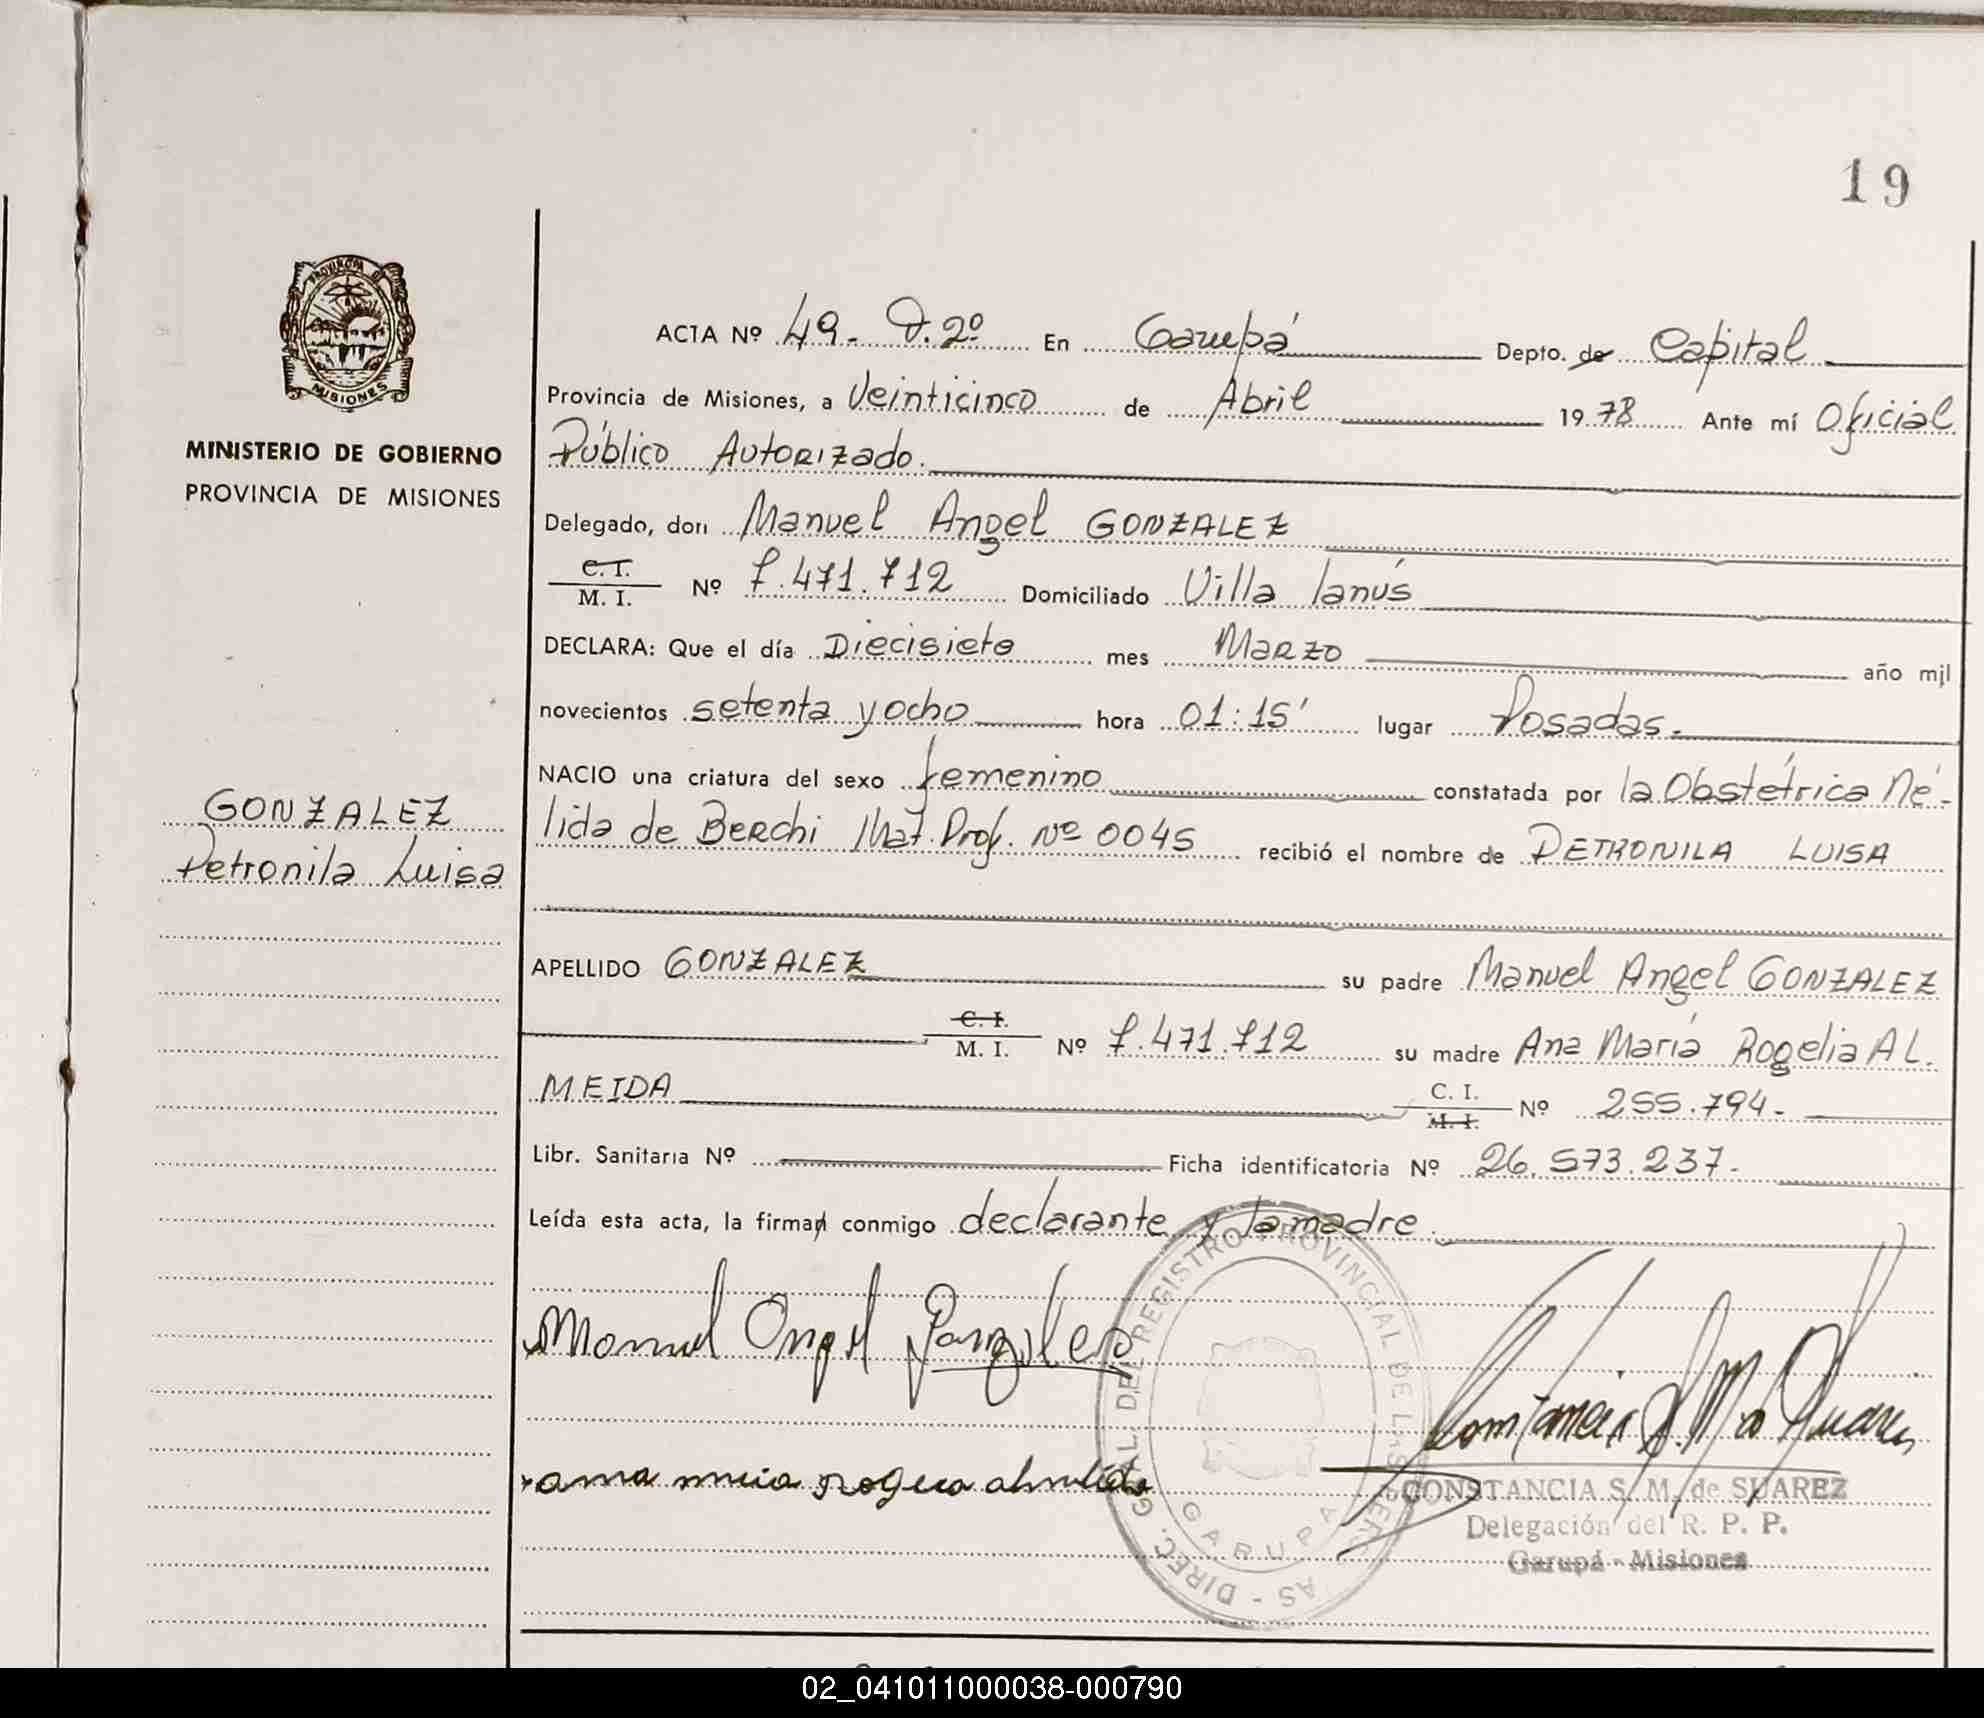 19
PROVINCIA DE
MISIONES
MINISTERIO DE GOBIERNO
PROVINCIA DE MISIONES
GONZALEZ
Petronila Luisa
ACTA Nº 49. T.2º En Garupá Depto. de Capital
Provincia de Misiones, a Veinticinco de Abril 1978 Ante mí Oficial
Público Autorizado.
Delegado, don Manuel Angel GONZALEZ
C. I.
M. I. Nº 7.471.712 Domiciliado Villa lanús
DECLARA: Que el día Diecisiete mes Marzo año mil
novecientos setenta y ocho hora 01:15' lugar Posadas.
NACIO una criatura del sexo femenino constatada por la Obstétrica Né-
lida de Berchi Mat. Prof. Nº 0045 recibió el nombre de PETRONILA LUISA
APELLIDO GONZALEZ su padre Manuel Angel GONZALEZ
C. I.
M. I. Nº 7.471.712 su madre Ana María Rogelia AL.
MEIDA C. I. Nº 255.794.-
M. I.
Libr. Sanitaria Nº Ficha identificatoria Nº 26.573.237.-
Leída esta acta, la firman conmigo declarante y la madre.
Manuel Angel Gonzalez
CONSTANCIA S. M. de SUAREZ
Delegación del R. P. P.
Garupá - Misiones
DIREC. GRAL DEL REGISTRO PROVINCIAL DE LAS PERSONAS
GARUPA
02_041011000038-000790